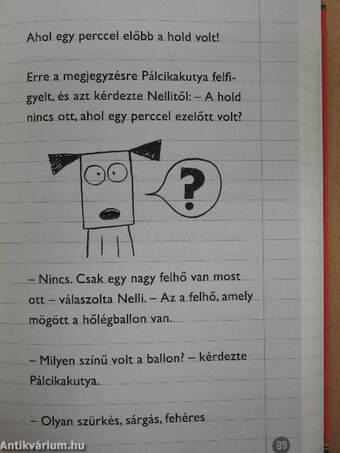 Ahol egy perccel előbb a hold volt!
Erre a megjegyzésre Pálcikakutya felfi-
gyelt, és azt kérdezte Nellitől: – A hold
nincs ott, ahol egy perccel ezelőtt volt?
?
– Nincs. Csak egy nagy felhő van most
ott – válaszolta Nelli. – Az a felhő, amely
mögött a hőlégballon van.
– Milyen színű volt a ballon? – kérdezte
Pálcikakutya.
– Olyan szürkés, sárgás, fehéres
89
Antikvárium.hu